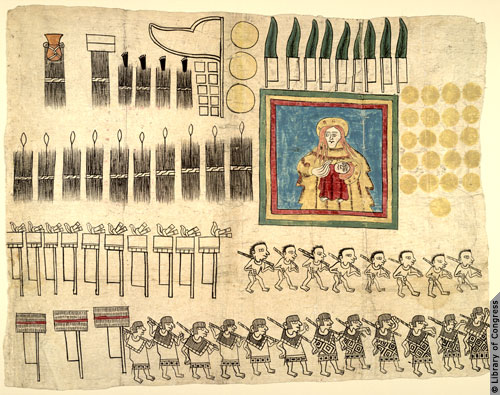 © Library of Congress